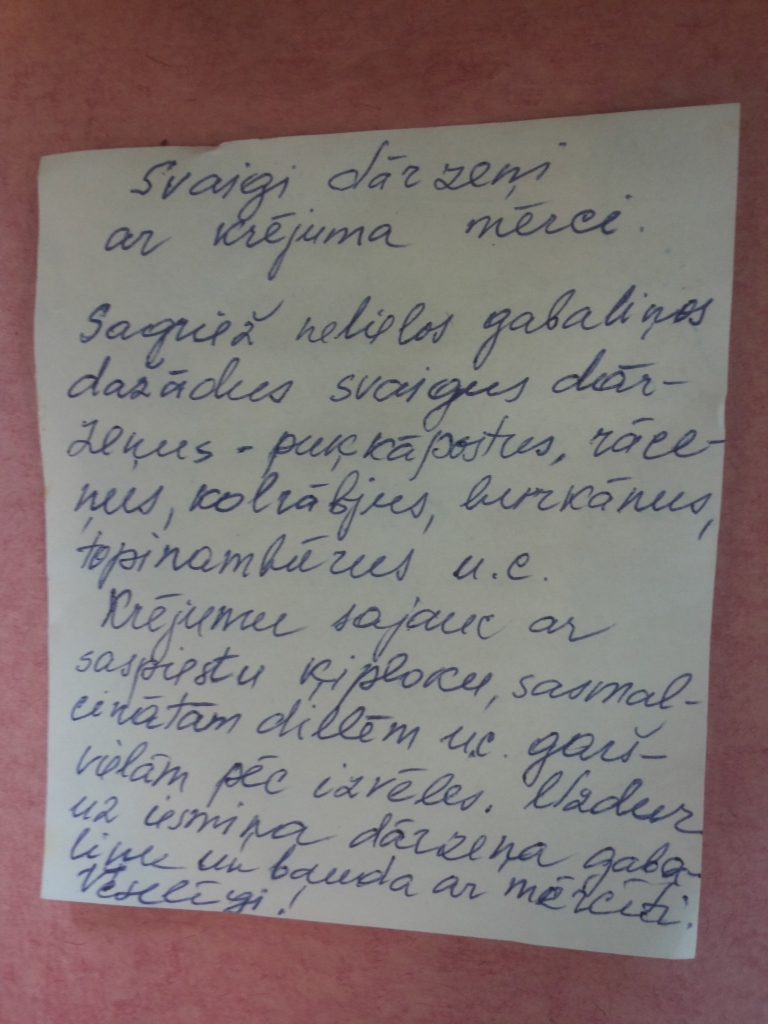 Svaigi dārzeņi
ar krējuma mērci.
Sagriež nelielos gabaliņos
dažādus svaigus dār-
zeņus - puķkāpostus, rāce-
ņus, kolrābjus, burkānus,
topinambūrus u.c.
Krējumu sajauc ar
saspiestu ķiploku, sasmal-
cinātām dillēm u.c. garš-
vielām pēc izvēles. Uzdur
uz iesmiņa dārzeņa gaba-
liņu un bauda ar mērcīti.
Veselīgi!